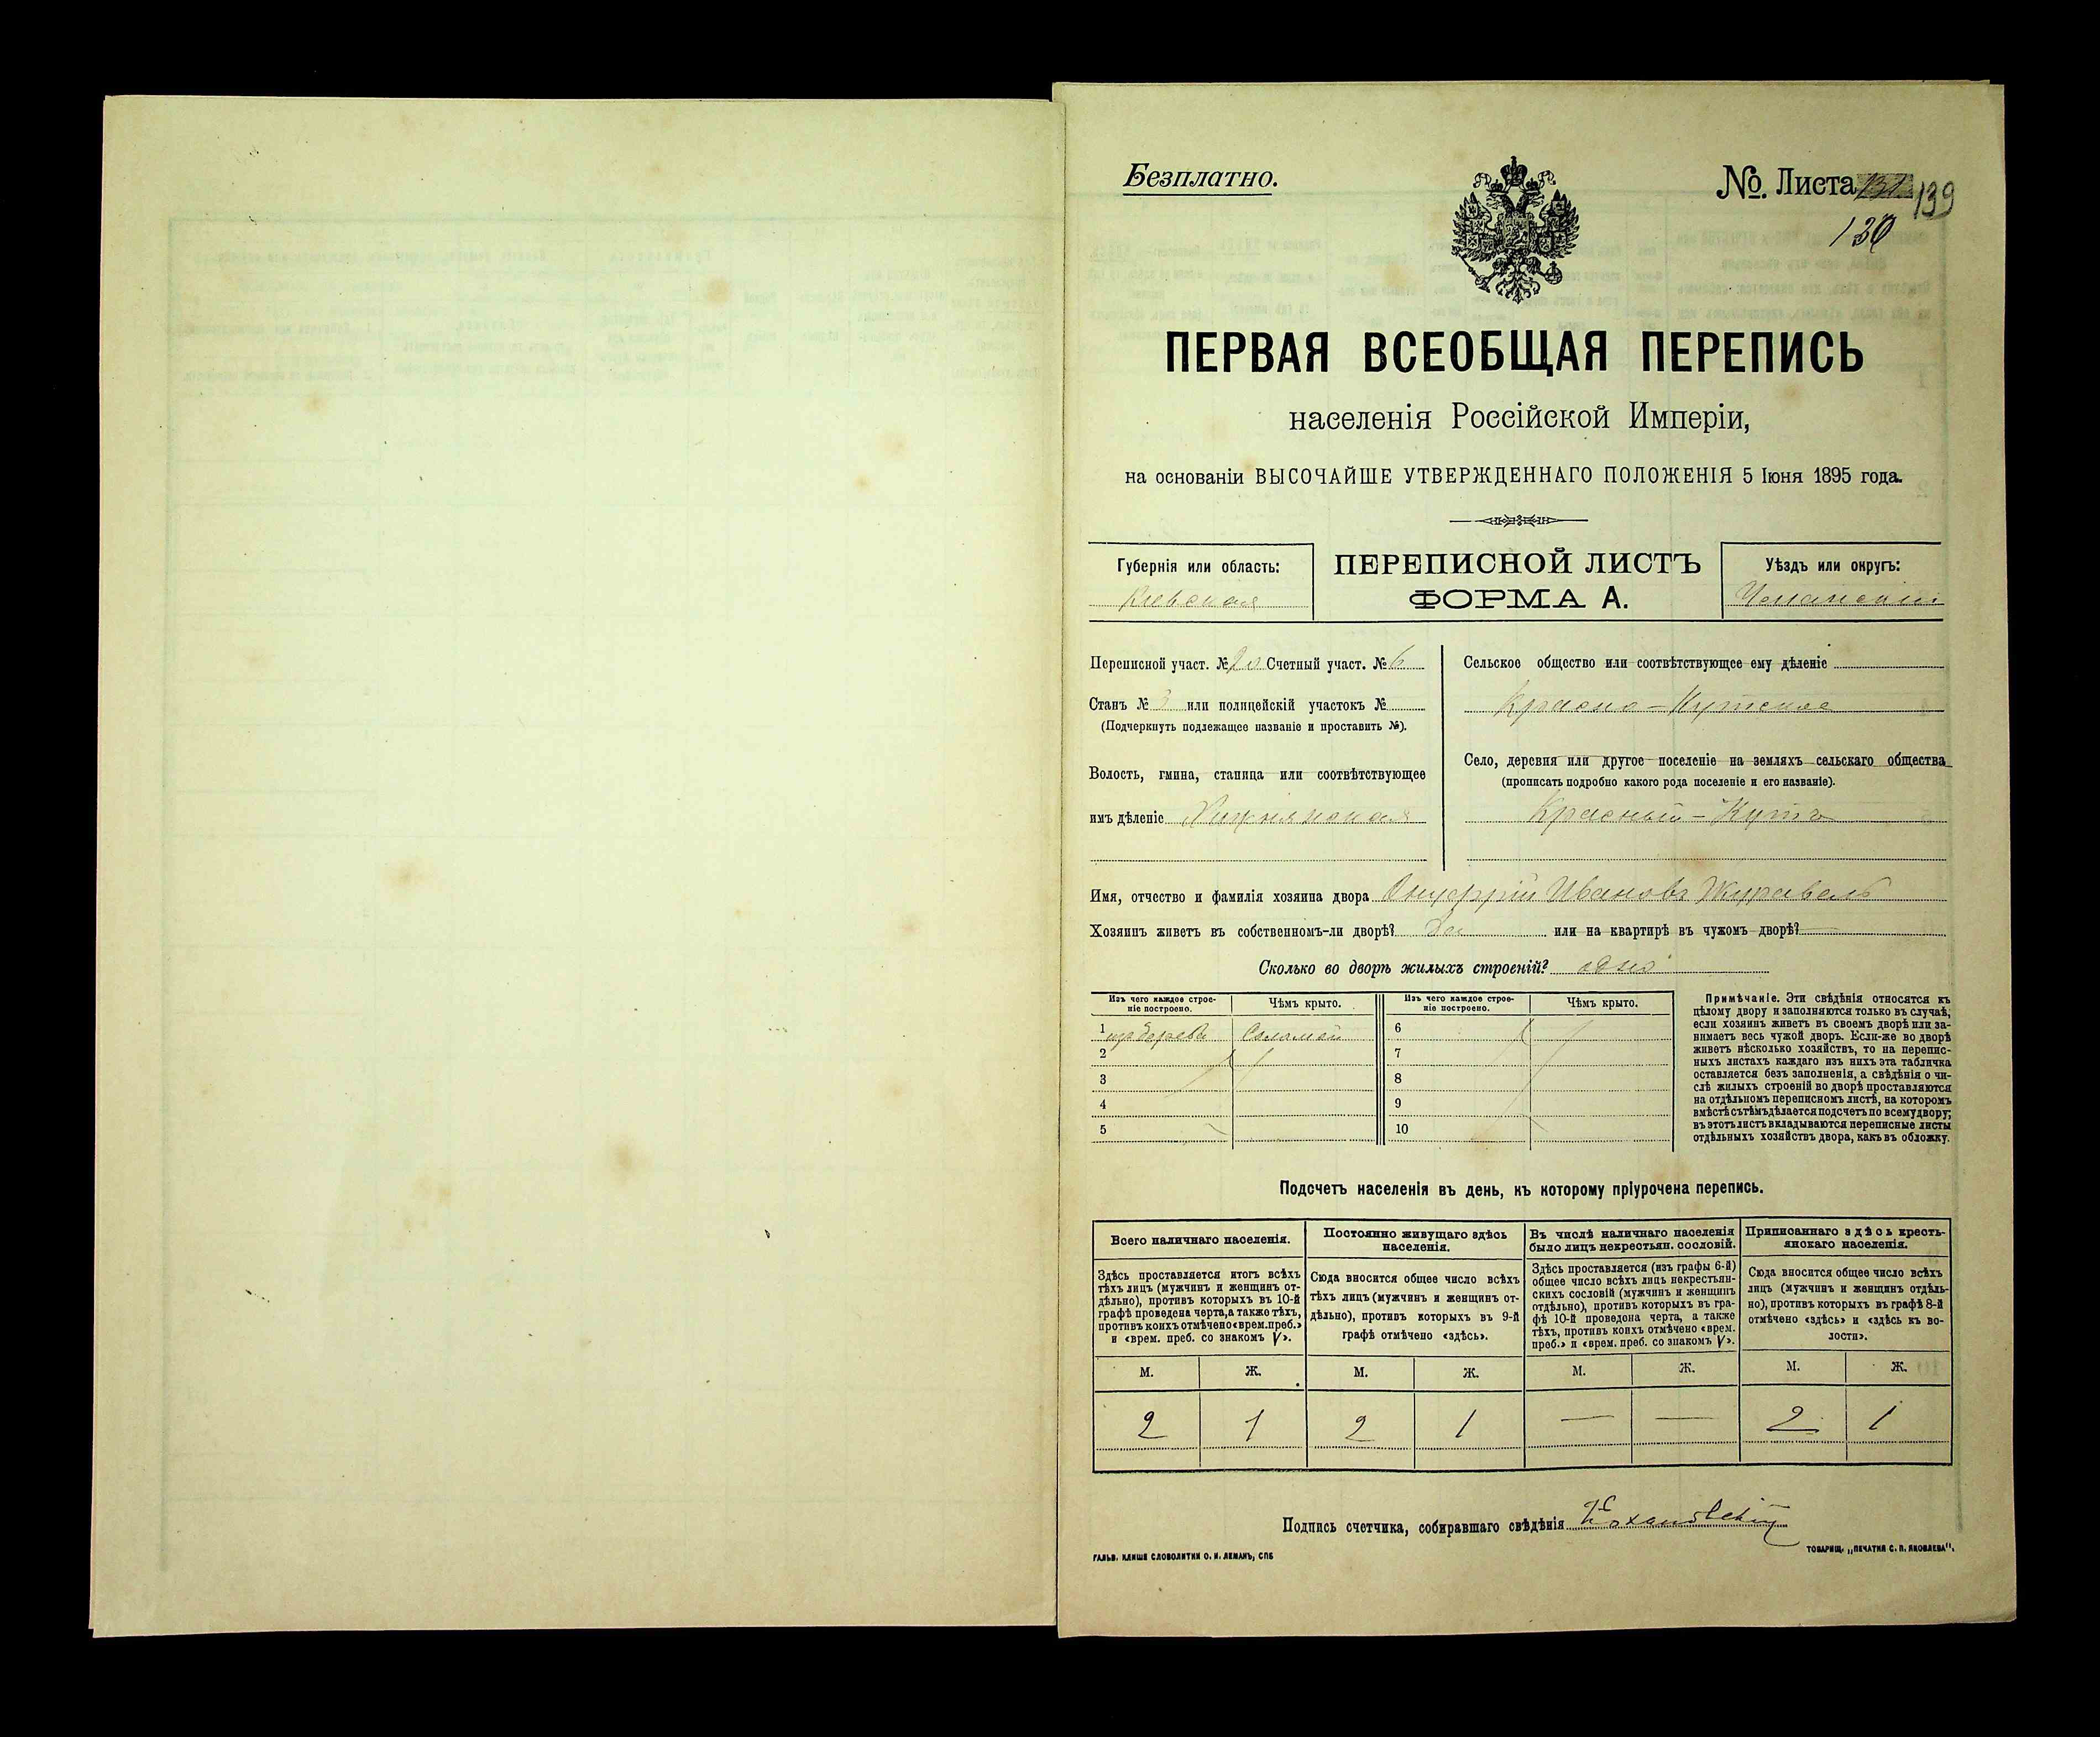 Безплатно.
№. Листа 139
130
ПЕРВАЯ ВСЕОБЩАЯ ПЕРЕПИСЬ
населенія Россійской Имперіи,
на основаніи ВЫСОЧАЙШЕ УТВЕРЖДЕННАГО ПОЛОЖЕНІЯ 5 Іюня 1895 года.
Губернія или область:
Кіевская
ПЕРЕПИСНОЙ ЛИСТЪ
ФОРМА А.
Уѣздъ или округъ:
Уманскій
Переписной участ. № 20 Счетный участ. № 6
Станъ № 3 или полицейскій участокъ №
(Подчеркнуть подлежащее названіе и проставить №).
Волость, гмина, станица или соотвѣтствующее
имъ дѣленіе
Сельское общество или соотвѣтствующее ему дѣленіе
Красно-Кутское
Село, деревня или другое поселеніе на земляхъ сельскаго общества
(прописать подробно какого рода поселеніе и его названіе).
Красный-Кутъ
Имя, отчество и фамилія хозяина двора Онуфрій Ивановъ Журавель
Хозяинъ живетъ въ собственномъ-ли дворѣ? Да или на квартирѣ въ чужомъ дворѣ? —
Сколько во дворѣ жилыхъ строеній? одно
Изъ чего каждое строе-
ніе построено.
Чѣмъ крыто.
Изъ чего каждое строе-
ніе построено.
Чѣмъ крыто.
1 изъ дерева Соломой 6
2 7
3 8
4 9
5 10
Примѣчаніе. Эти свѣдѣнія относятся къ
цѣлому двору и заполняются только въ случаѣ,
если хозяинъ живетъ въ своемъ дворѣ или за-
нимаетъ весь чужой дворъ. Если-же во дворѣ
живетъ нѣсколько хозяйствъ, то на перепис-
ныхъ листахъ каждаго изъ нихъ эта табличка
оставляется безъ заполненія, а свѣдѣнія о чи-
слѣ жилыхъ строеній во дворѣ проставляются
на отдѣльномъ переписномъ листѣ, на которомъ
вмѣстѣ съ тѣмъ дѣлается подсчетъ по всему двору;
въ этотъ листъ вкладываются переписные листы
отдѣльныхъ хозяйствъ двора, какъ въ обложку.
Подсчетъ населенія въ день, къ которому пріурочена перепись.
Всего наличнаго населенія.
Здѣсь проставляется итогъ всѣхъ
тѣхъ лицъ (мужчинъ и женщинъ от-
дѣльно), противъ которыхъ въ 10-й
графѣ проведена черта, а также тѣхъ,
противъ коихъ отмѣчено «врем. преб.»
и «врем. преб. со знакомъ V».
Постоянно живущаго здѣсь
населенія.
Сюда вносится общее число всѣхъ
тѣхъ лицъ (мужчинъ и женщинъ от-
дѣльно), противъ которыхъ въ 9-й
графѣ отмѣчено «здѣсь».
Въ числѣ наличнаго населенія
было лицъ некрестьян. сословій.
Здѣсь проставляется (изъ графы 6-й)
общее число всѣхъ лицъ некрестьян-
скихъ сословій (мужчинъ и женщинъ
отдѣльно), противъ которыхъ въ гра-
фѣ 10-й проведена черта, а также
тѣхъ, противъ коихъ отмѣчено «врем.
преб.» и «врем. преб. со знакомъ V».
Приписаннаго здѣсь кресть-
янскаго населенія.
Сюда вносится общее число всѣхъ
лицъ (мужчинъ и женщинъ отдѣль-
но), противъ которыхъ въ графѣ 8-й
отмѣчено «здѣсь» и «здѣсь къ во-
лости».
М. Ж. М. Ж. М. Ж. М. Ж.
2 1 2 1 — — 2 1
Подпись счетчика, собиравшаго свѣдѣнія
ГАЛЬВ. КЛИШЕ СЛОВОЛИТНИ О. И. ЛЕМАНЪ, СПБ
ТОВАРИЩ. „ПЕЧАТНЯ С. П. ЯКОВЛЕВА".